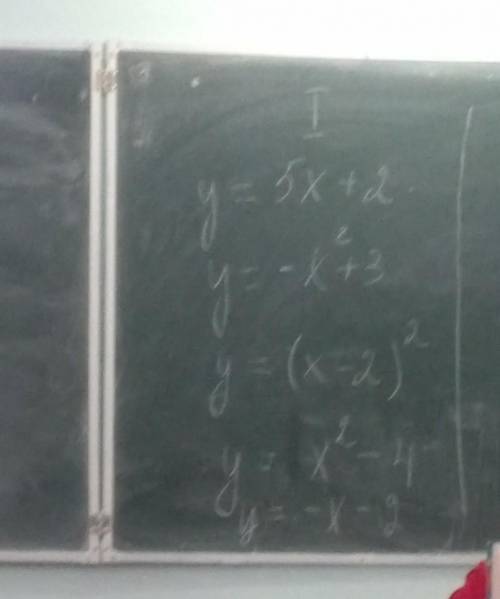 I
y = 5x + 2
y = -x² + 3
y = (x - 2)²
y = x² - 4
y = -x - 2